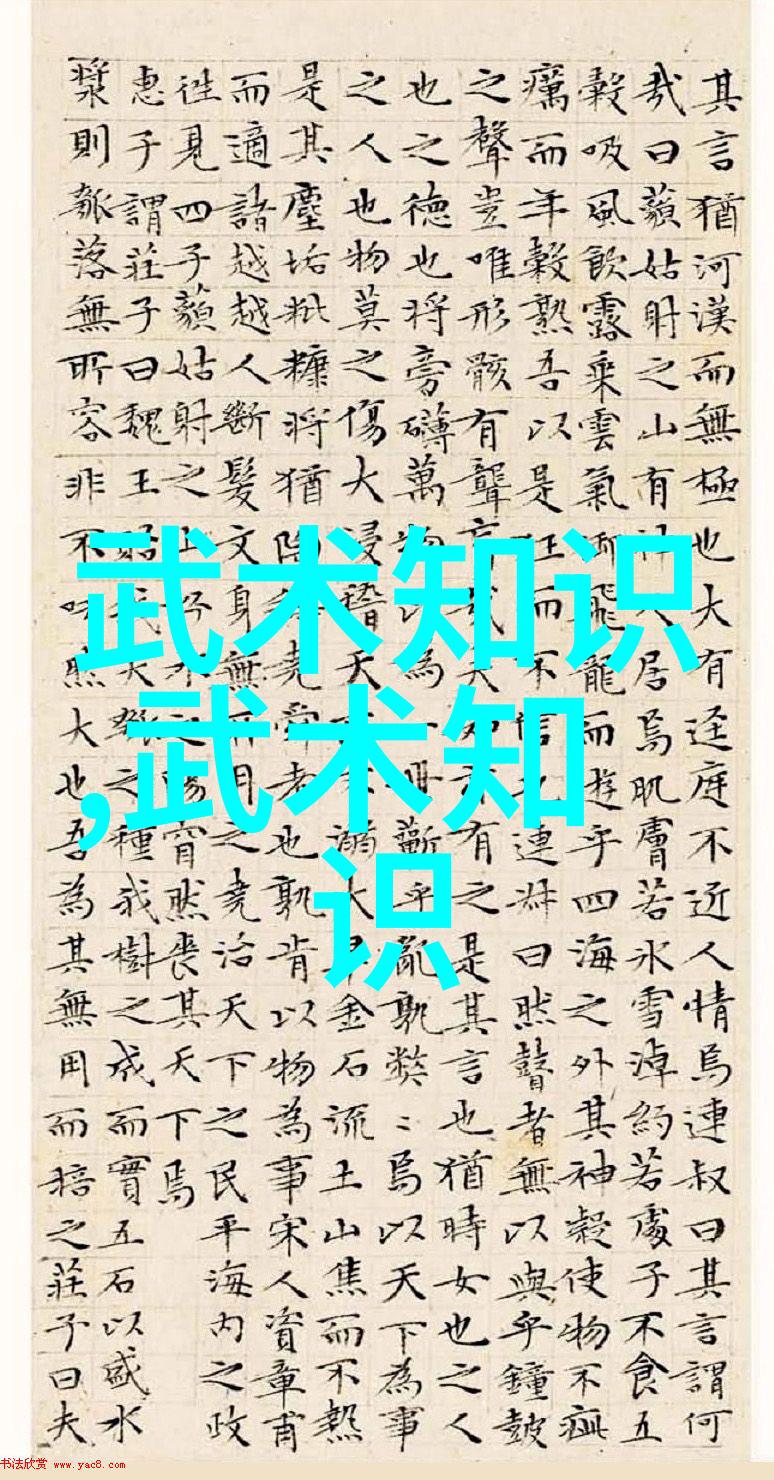 其言猶河漢而無極也大有迳庭不近人情焉連叔曰其言謂何
哉曰藐姑射之山有神人居焉肌膚若冰雪淖約若處子不食五
穀吸風飲露乘雲氣御飛龍而遊乎四海之外其神凝使物不疵
癘而年穀熟吾以是狂而不信也連叔曰然瞽者無以與乎鐘鼓
之聲豈唯形骸有聾盲哉夫知亦有之是其言也猶時女也之人
也之德也將旁礴萬物以為一世蘄乎亂孰弊〻焉以天下為事
之人也物莫之傷大浸稽天而不溺大旱金石流土山焦而不熱
是其塵垢粃糠將猶陶鑄堯舜者也孰肯以物為事宋人資章甫
而適諸越越人斷髮文身無所用之堯治天下之民平海內之政
往見四子藐姑射之山汾水之陽窅然喪其天下焉
惠子謂莊子曰魏王貽我大瓠之種我樹之成而實五石以盛水
漿則瓠落無所容非不呺然大也吾為其無用而掊之莊子曰夫
武术知识
,武术知
识
书法欣赏 www.yac8.com